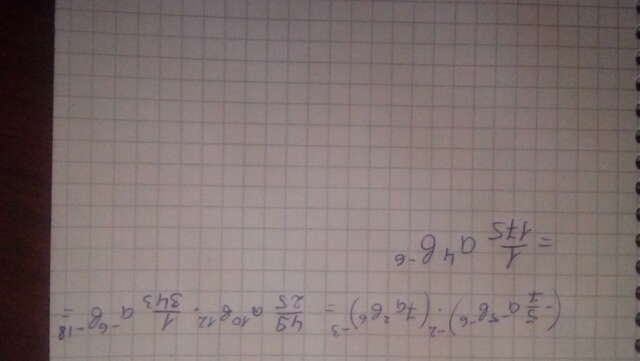 (-5/7 a⁻⁵b⁻⁶)⁻² · (7a²b⁶)⁻³ = 49/25 a¹⁰b¹² · 1/343 a⁻⁶b⁻¹⁸ =
= 1/175 a⁴b⁻⁶